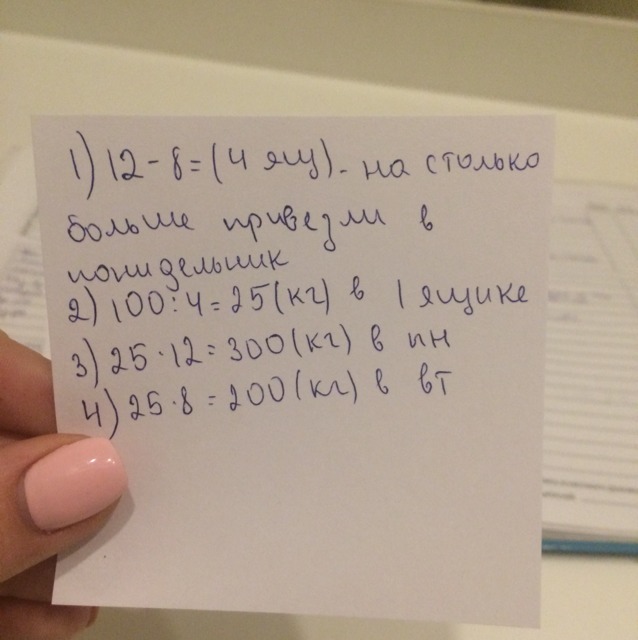 1) 12 - 8 = (4 ящ). на столько
больше привезли в
понидельник
2) 100 : 4 = 25 (кг) в 1 ящике
3) 25 · 12 = 300 (кг) в пн
4) 25 · 8 = 200 (кг) в вт